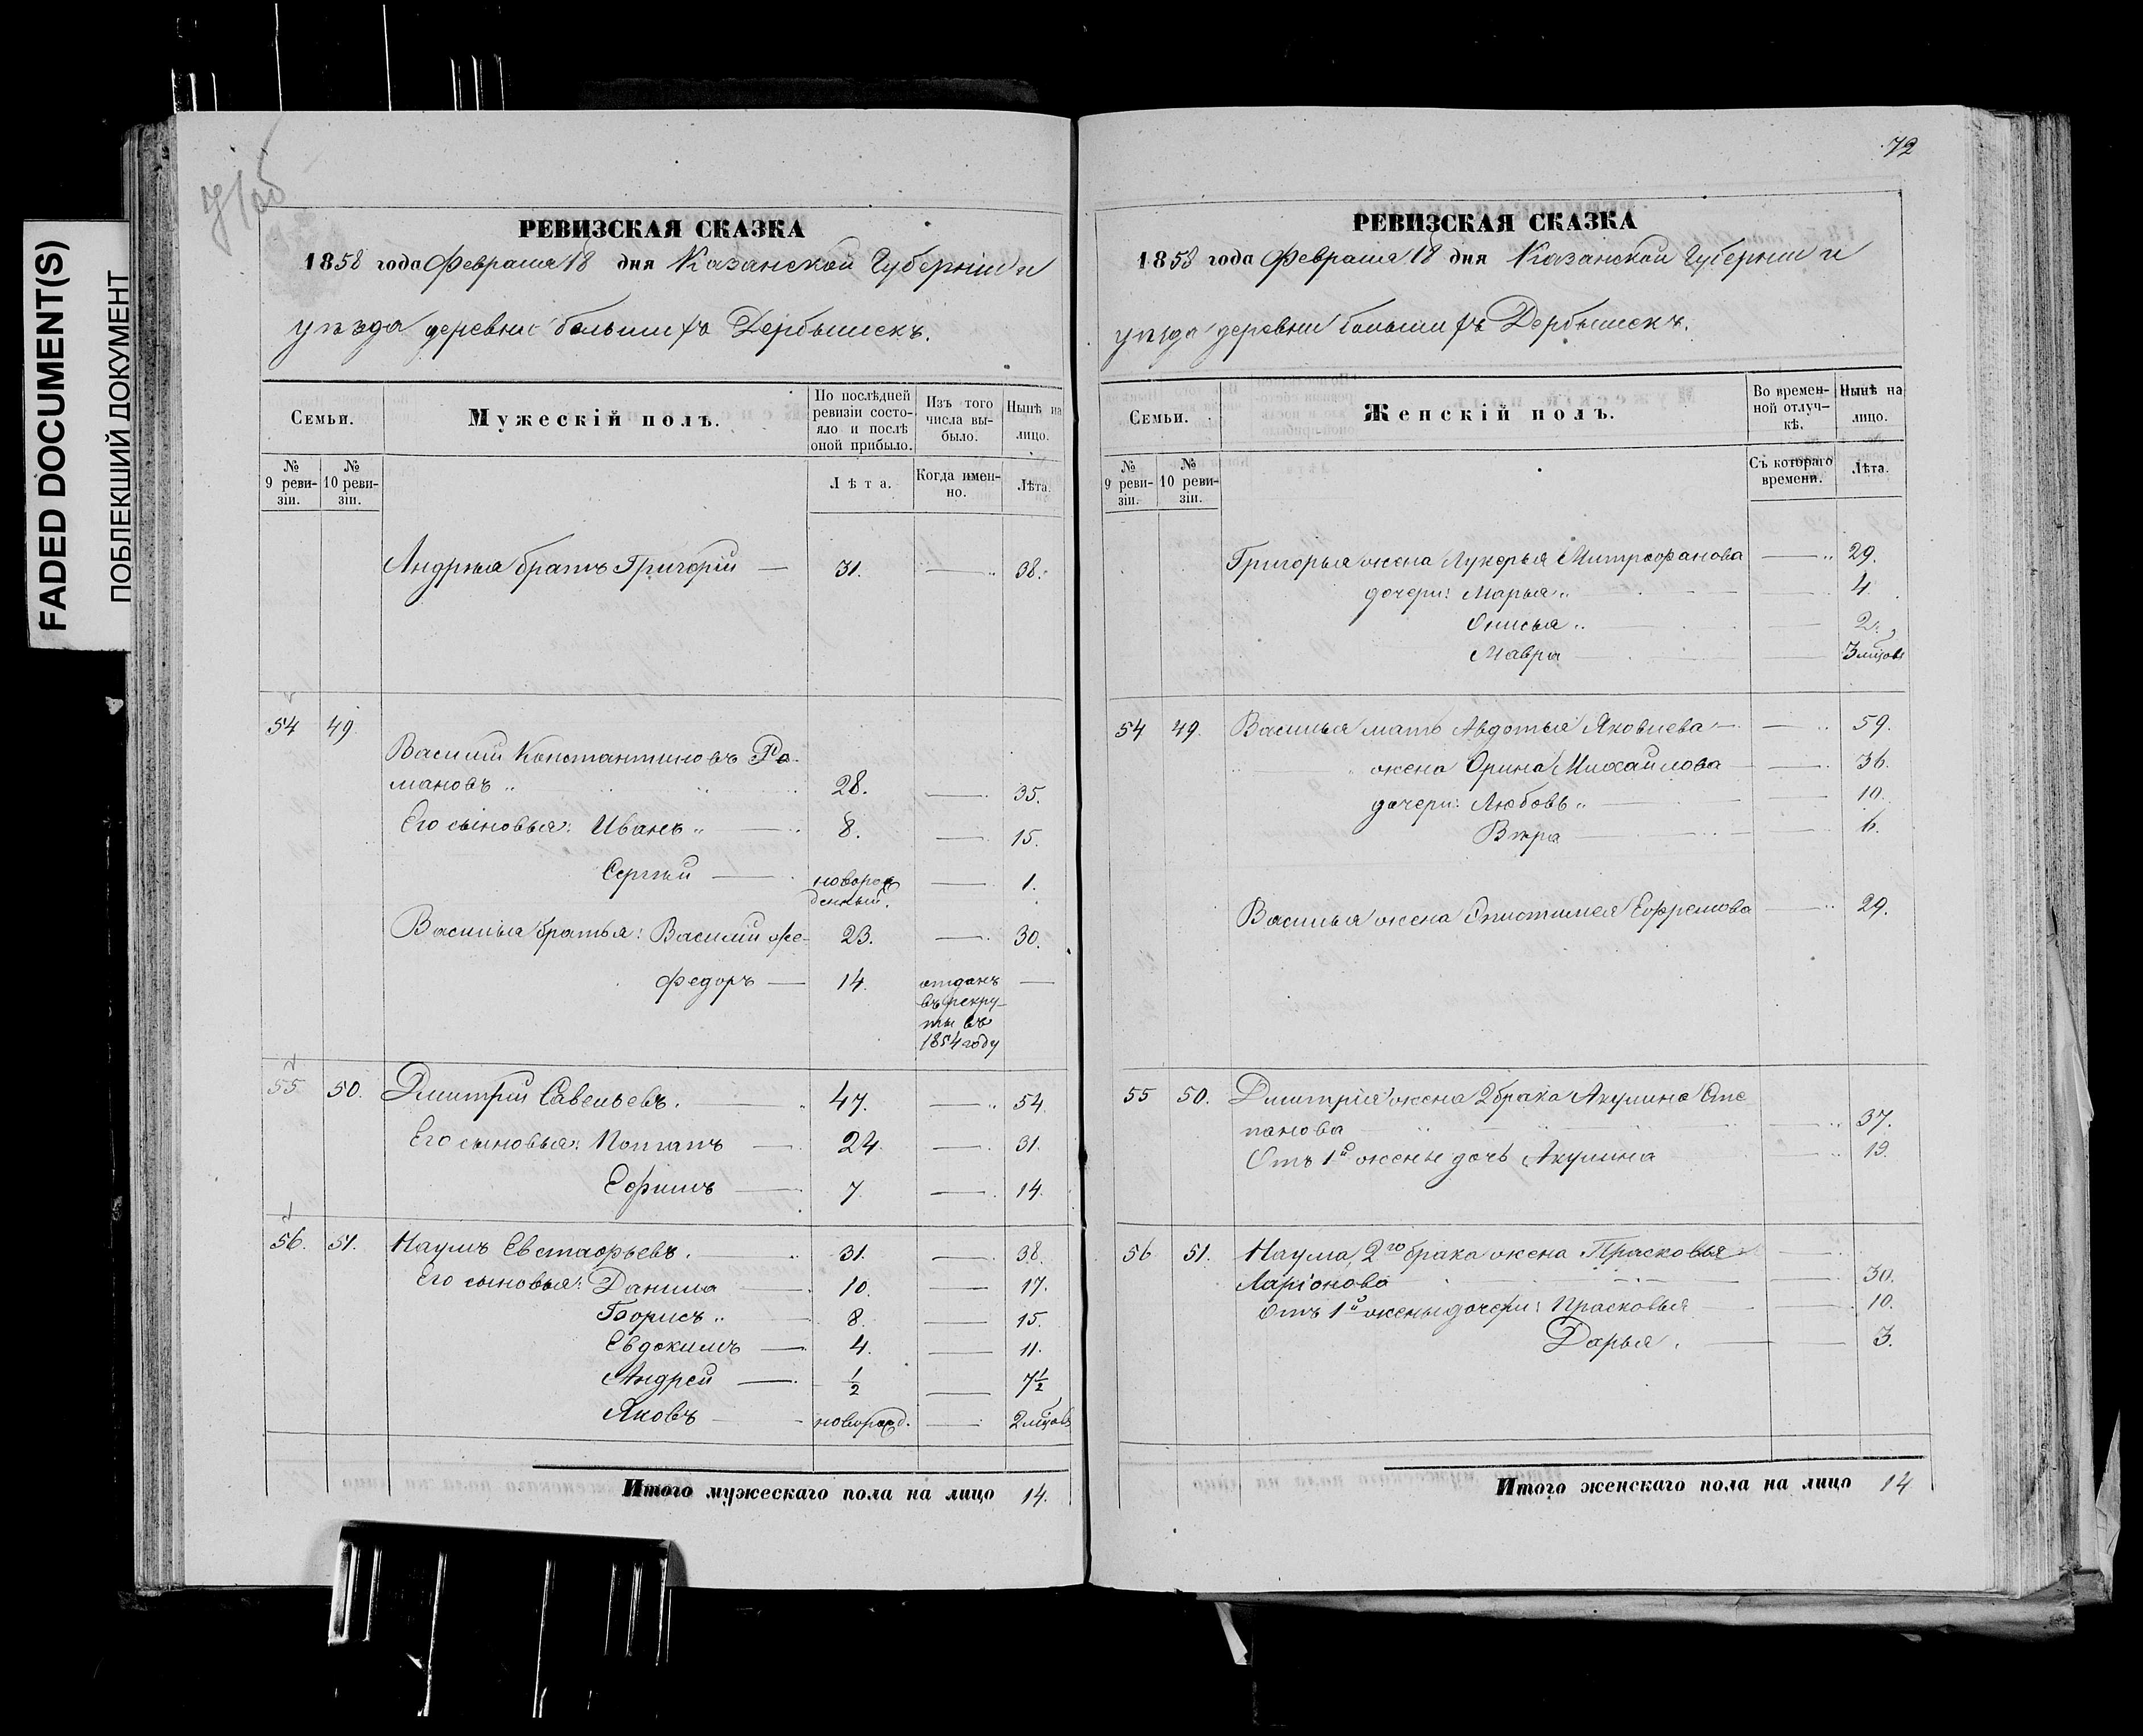 FADED DOCUMENT(S)
ПОБЛЕКШИЙ ДОКУМЕНТ
РЕВИЗСКАЯ СКАЗКА
1858 года Февраля 18 дня Казанской Губерніи и
уѣзда деревни большихъ Дербышекъ.
Семьи.
Мужескій полъ.
По послѣдней ревизіи состояло и послѣ оной прибыло.
Изъ того числа выбыло.
Нынѣ на лицо.
№ 9 ревизіи.
№ 10 ревизіи.
Лѣта.
Когда именно.
Лѣта.
Андрѣя братъ Григорій — 31. — 38.
54 49.
Василій Константиновъ Ро-
мановъ 28. — 35.
Его сыновья: Иванъ — 8. — 15.
Сергѣй — новорож- — 1.
денный.
Василья братья: Василій же- 23. — 30.
Федоръ — 14. отданъ —
въ рекру-
ты въ
1854 году
55 50. Дмитрій Савельевъ. — 47. — 54.
Его сыновья: Потапъ — 24. — 31.
Ефимъ — 7. — 14.
56. 51. Наумъ Евстафьевъ. — 31. — 38.
Его сыновья: Данила — 10. — 17.
Борисъ — 8. — 15.
Евдокимъ — 4. — 11.
Андрей — 1/2 — 7 1/2
Яковъ — новорожд. — 2 мѣцовъ
Итого мужескаго пола на лицо 14.
72
РЕВИЗСКАЯ СКАЗКА
1858 года Февраля 18 дня Казанской Губерніи и
уѣзда деревни большихъ Дербышекъ.
Семьи.
Женскій полъ.
Во временной отлучкѣ.
Нынѣ на лицо.
№ 9 ревизіи.
№ 10 ревизіи.
Съ котораго времени.
Лѣта.
Григорья жена Лукерья Митрофанова — 29.
дочери: Марья — 4.
Онисья — 2.
Мавра — 3 мѣцовъ
54 49. Василья мать Авдотья Яковлева — 59.
жена Орина Михайлова — 36.
дочери: Любовь — 10.
Вѣра — 6.
Василья жена Опистимея Ефремова — 29.
55 50. Дмитрія жена 2 брака Акулина Сте
панова — 37.
Отъ 1й жены дочь Акулина — 19.
56 51. Наума, 2го брака жена Прасковья —
Ларіонова — 30.
Отъ 1й жены дочери: Прасковья — 10.
Дарья. — 3.
Итого женскаго пола на лицо 14